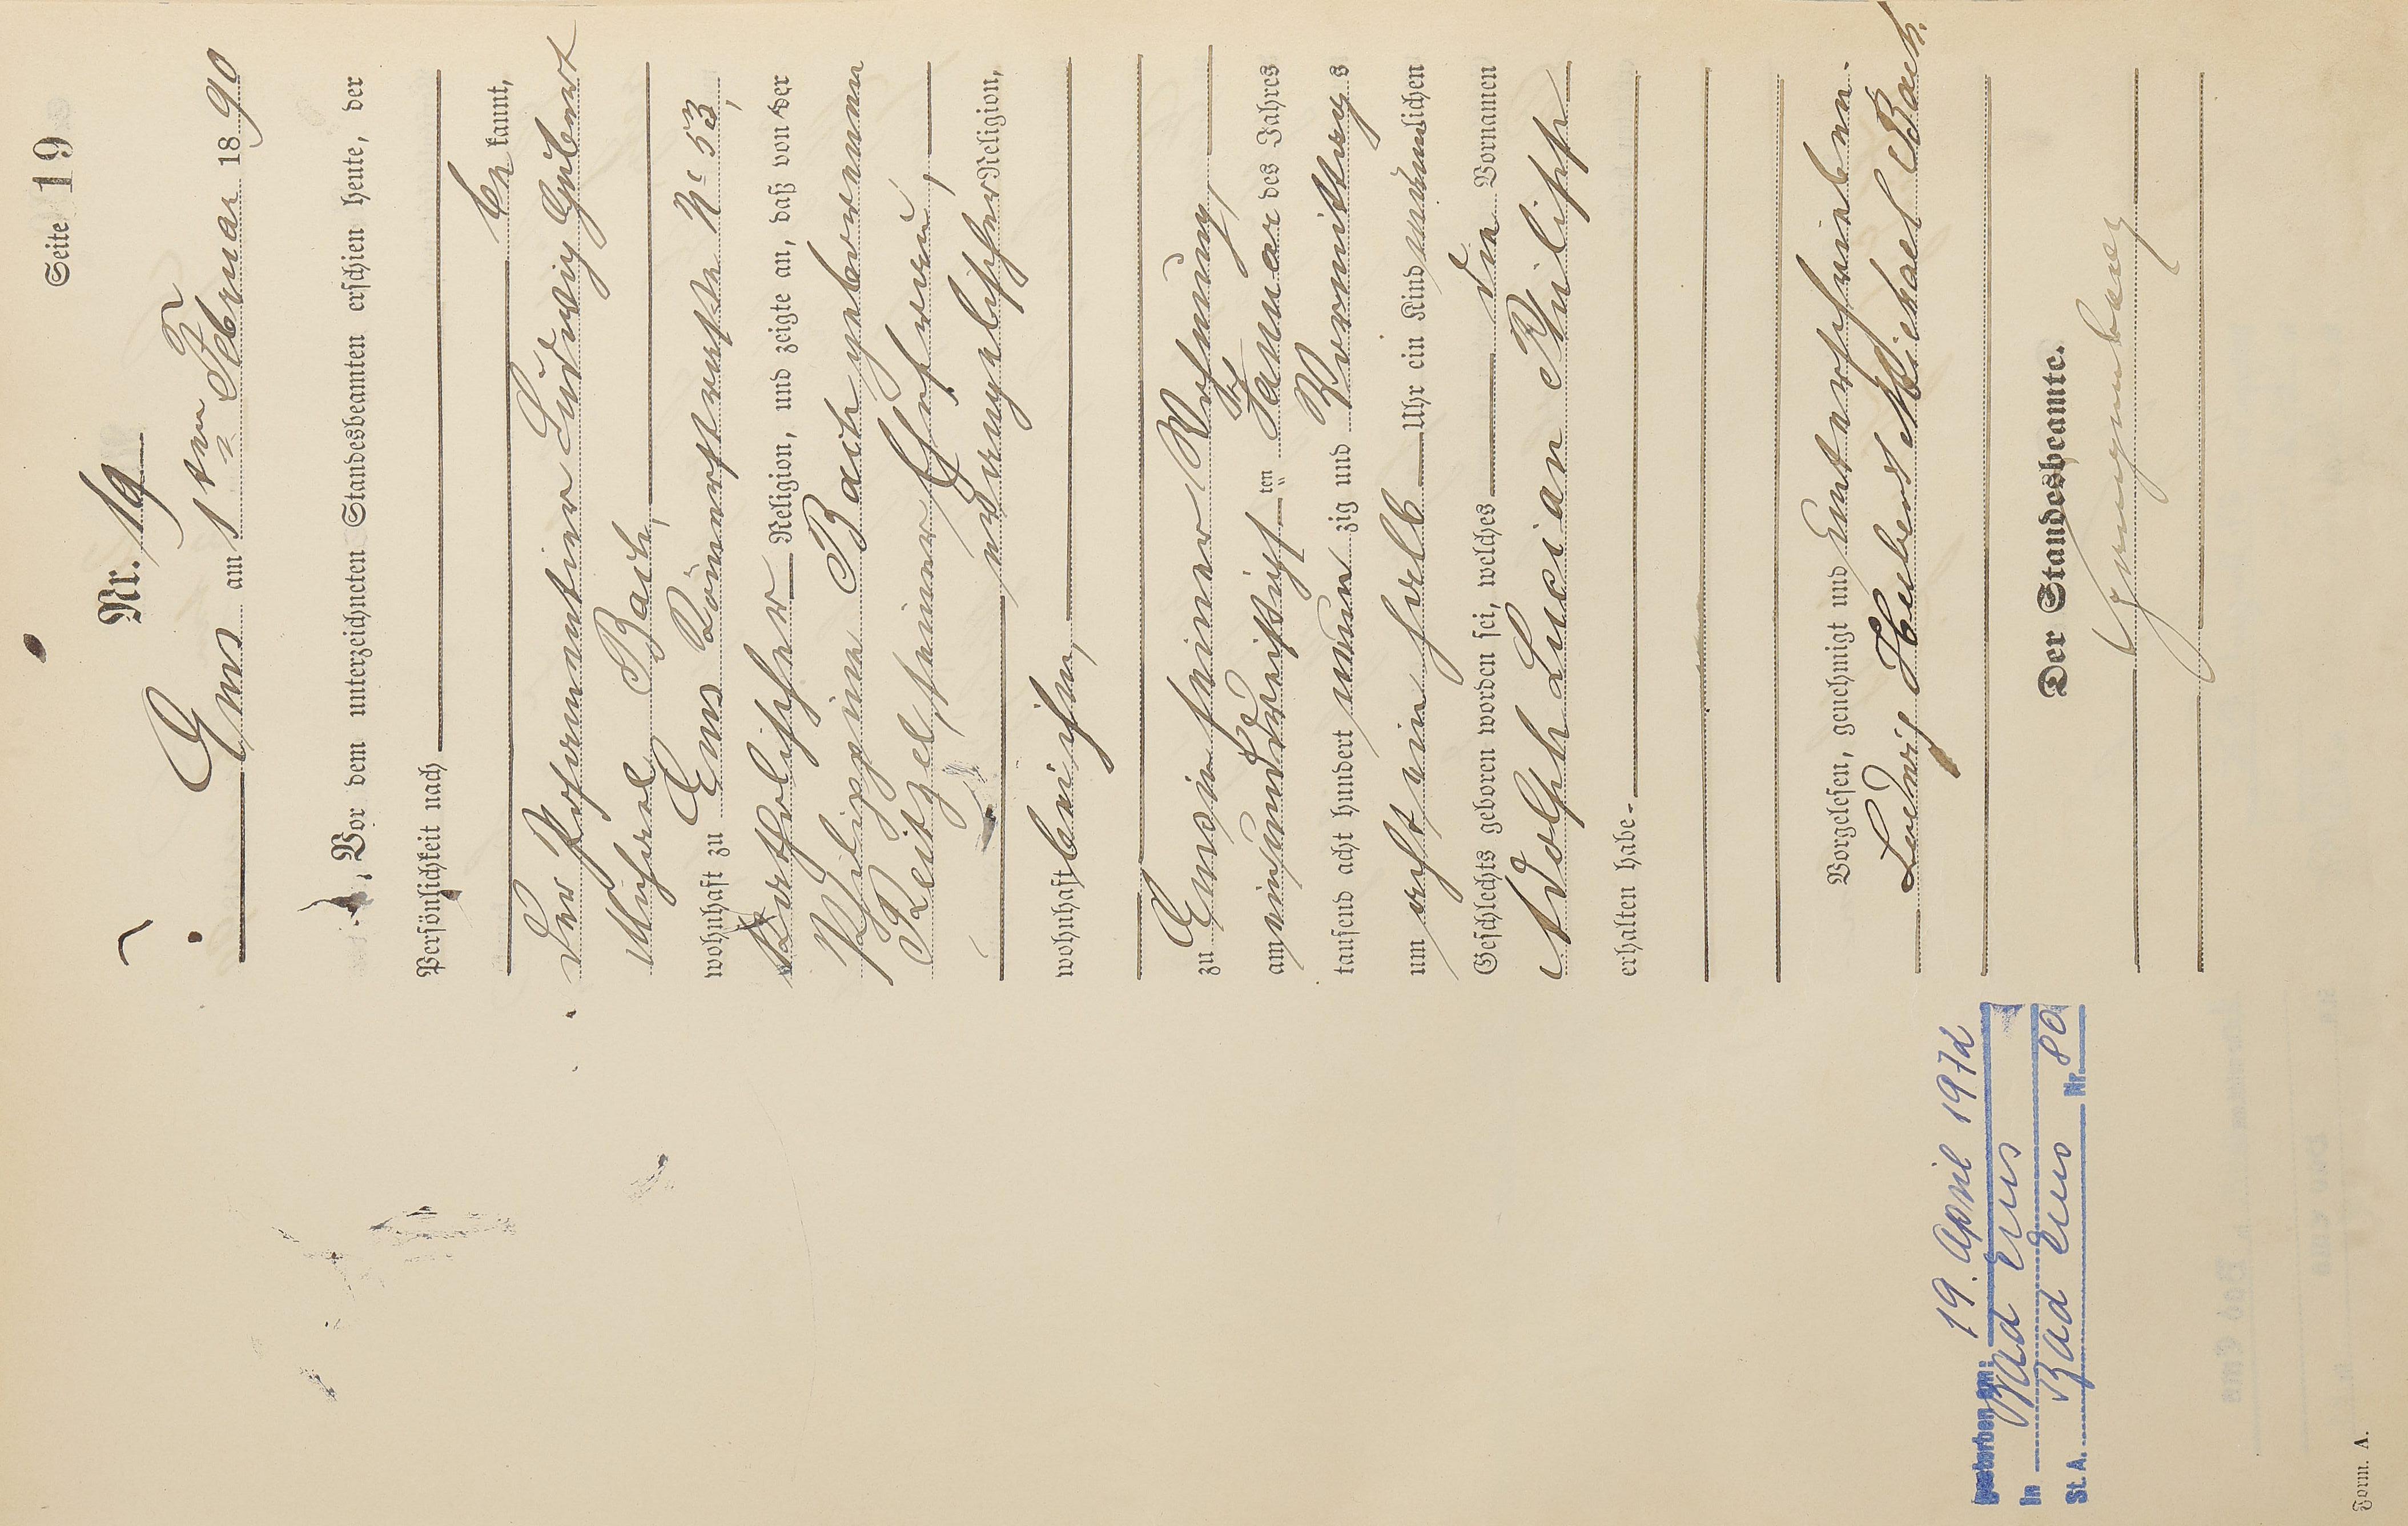 Seite 19
Nr. 19
Ems am 1ten Februar 1890
Vor dem unterzeichneten Standesbeamten erschien heute, der
Persönlichkeit nach
be kannt,
der Posamentier Ludwig Hubert
Michael Bach,
wohnhaft zu Ems Römerstraße No 53,
katholischer Religion, und zeigte an, daß von der
Philippine Bach geborenen
Reitzel, seiner Ehefrau,
evangelischer Religion,
wohnhaft bei ihm,
zu Ems in seiner Wohnung,
am einunddreißigsten Januar des Jahres
tausend acht hundert neunzig und Vormittags
um acht ein halb Uhr ein Kind männlichen
Geschlechts geboren worden sei, welches die Vornamen
Adolph Lucian Philipp
erhalten habe.
Vorgelesen, genehmigt und unterschrieben.
Ludwig Hubert Michael Bach.
Der Standesbeamte.
gestorben am: 19. April 1972
in Bad Ems
St. A. Bad Ems Nr. 80
Form. A.